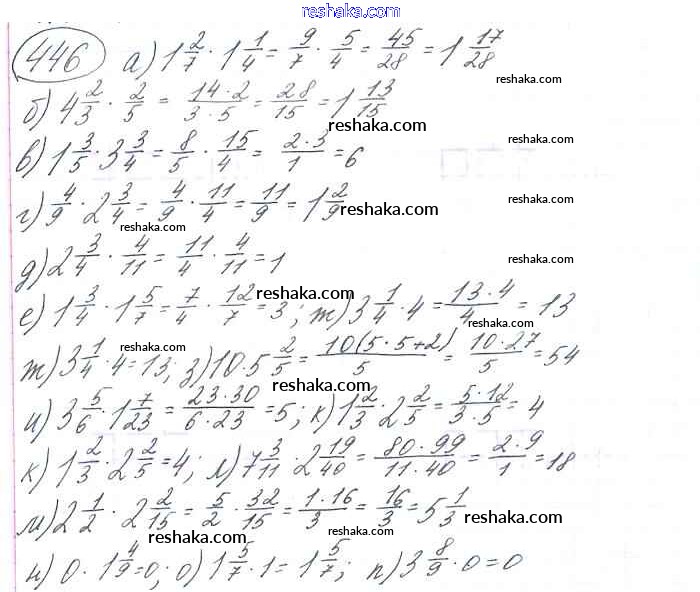 reshaka.com
446 а) 1 2/7 · 1 1/4 = 9/7 · 5/4 = 45/28 = 1 17/28
reshaka.com
б) 4 2/3 · 2/5 = 14·2/3·5 = 28/15 = 1 13/15
reshaka.com
reshaka.com
в) 1 3/5 · 3 3/4 = 8/5 · 15/4 = 2·3/1 = 6
г) 4/9 · 2 3/4 = 4/9 · 11/4 = 11/9 = 1 2/9
reshaka.com
reshaka.com
reshaka.com
д) 2 3/4 · 4/11 = 11/4 · 4/11 = 1
reshaka.com
е) 1 3/4 · 1 5/7 = 7/4 · 12/7 = 3; ж) 3 1/4 · 4 = 13·4/4 = 13
reshaka.com
reshaka.com
reshaka.com
ж) 3 1/4 · 4 = 13; з) 10·5 2/5 = 10(5·5+2)/5 = 10·27/5 = 54
reshaka.com
и) 3 5/6 · 1 7/23 = 23·30/6·23 = 5; к) 1 2/3 · 2 2/5 = 5·12/3·5 = 4
reshaka.com
reshaka.com
к) 1 2/3 · 2 2/5 = 4; л) 7 3/11 · 2 19/40 = 80·99/11·40 = 2·9/1 = 18
м) 2 1/2 · 2 2/15 = 5/2 · 32/15 = 1·16/3 = 16/3 = 5 1/3
reshaka.com
reshaka.com
reshaka.com
н) 0 · 1 4/9 = 0; о) 1 5/7 · 1 = 1 5/7; п) 3 8/9 · 0 = 0